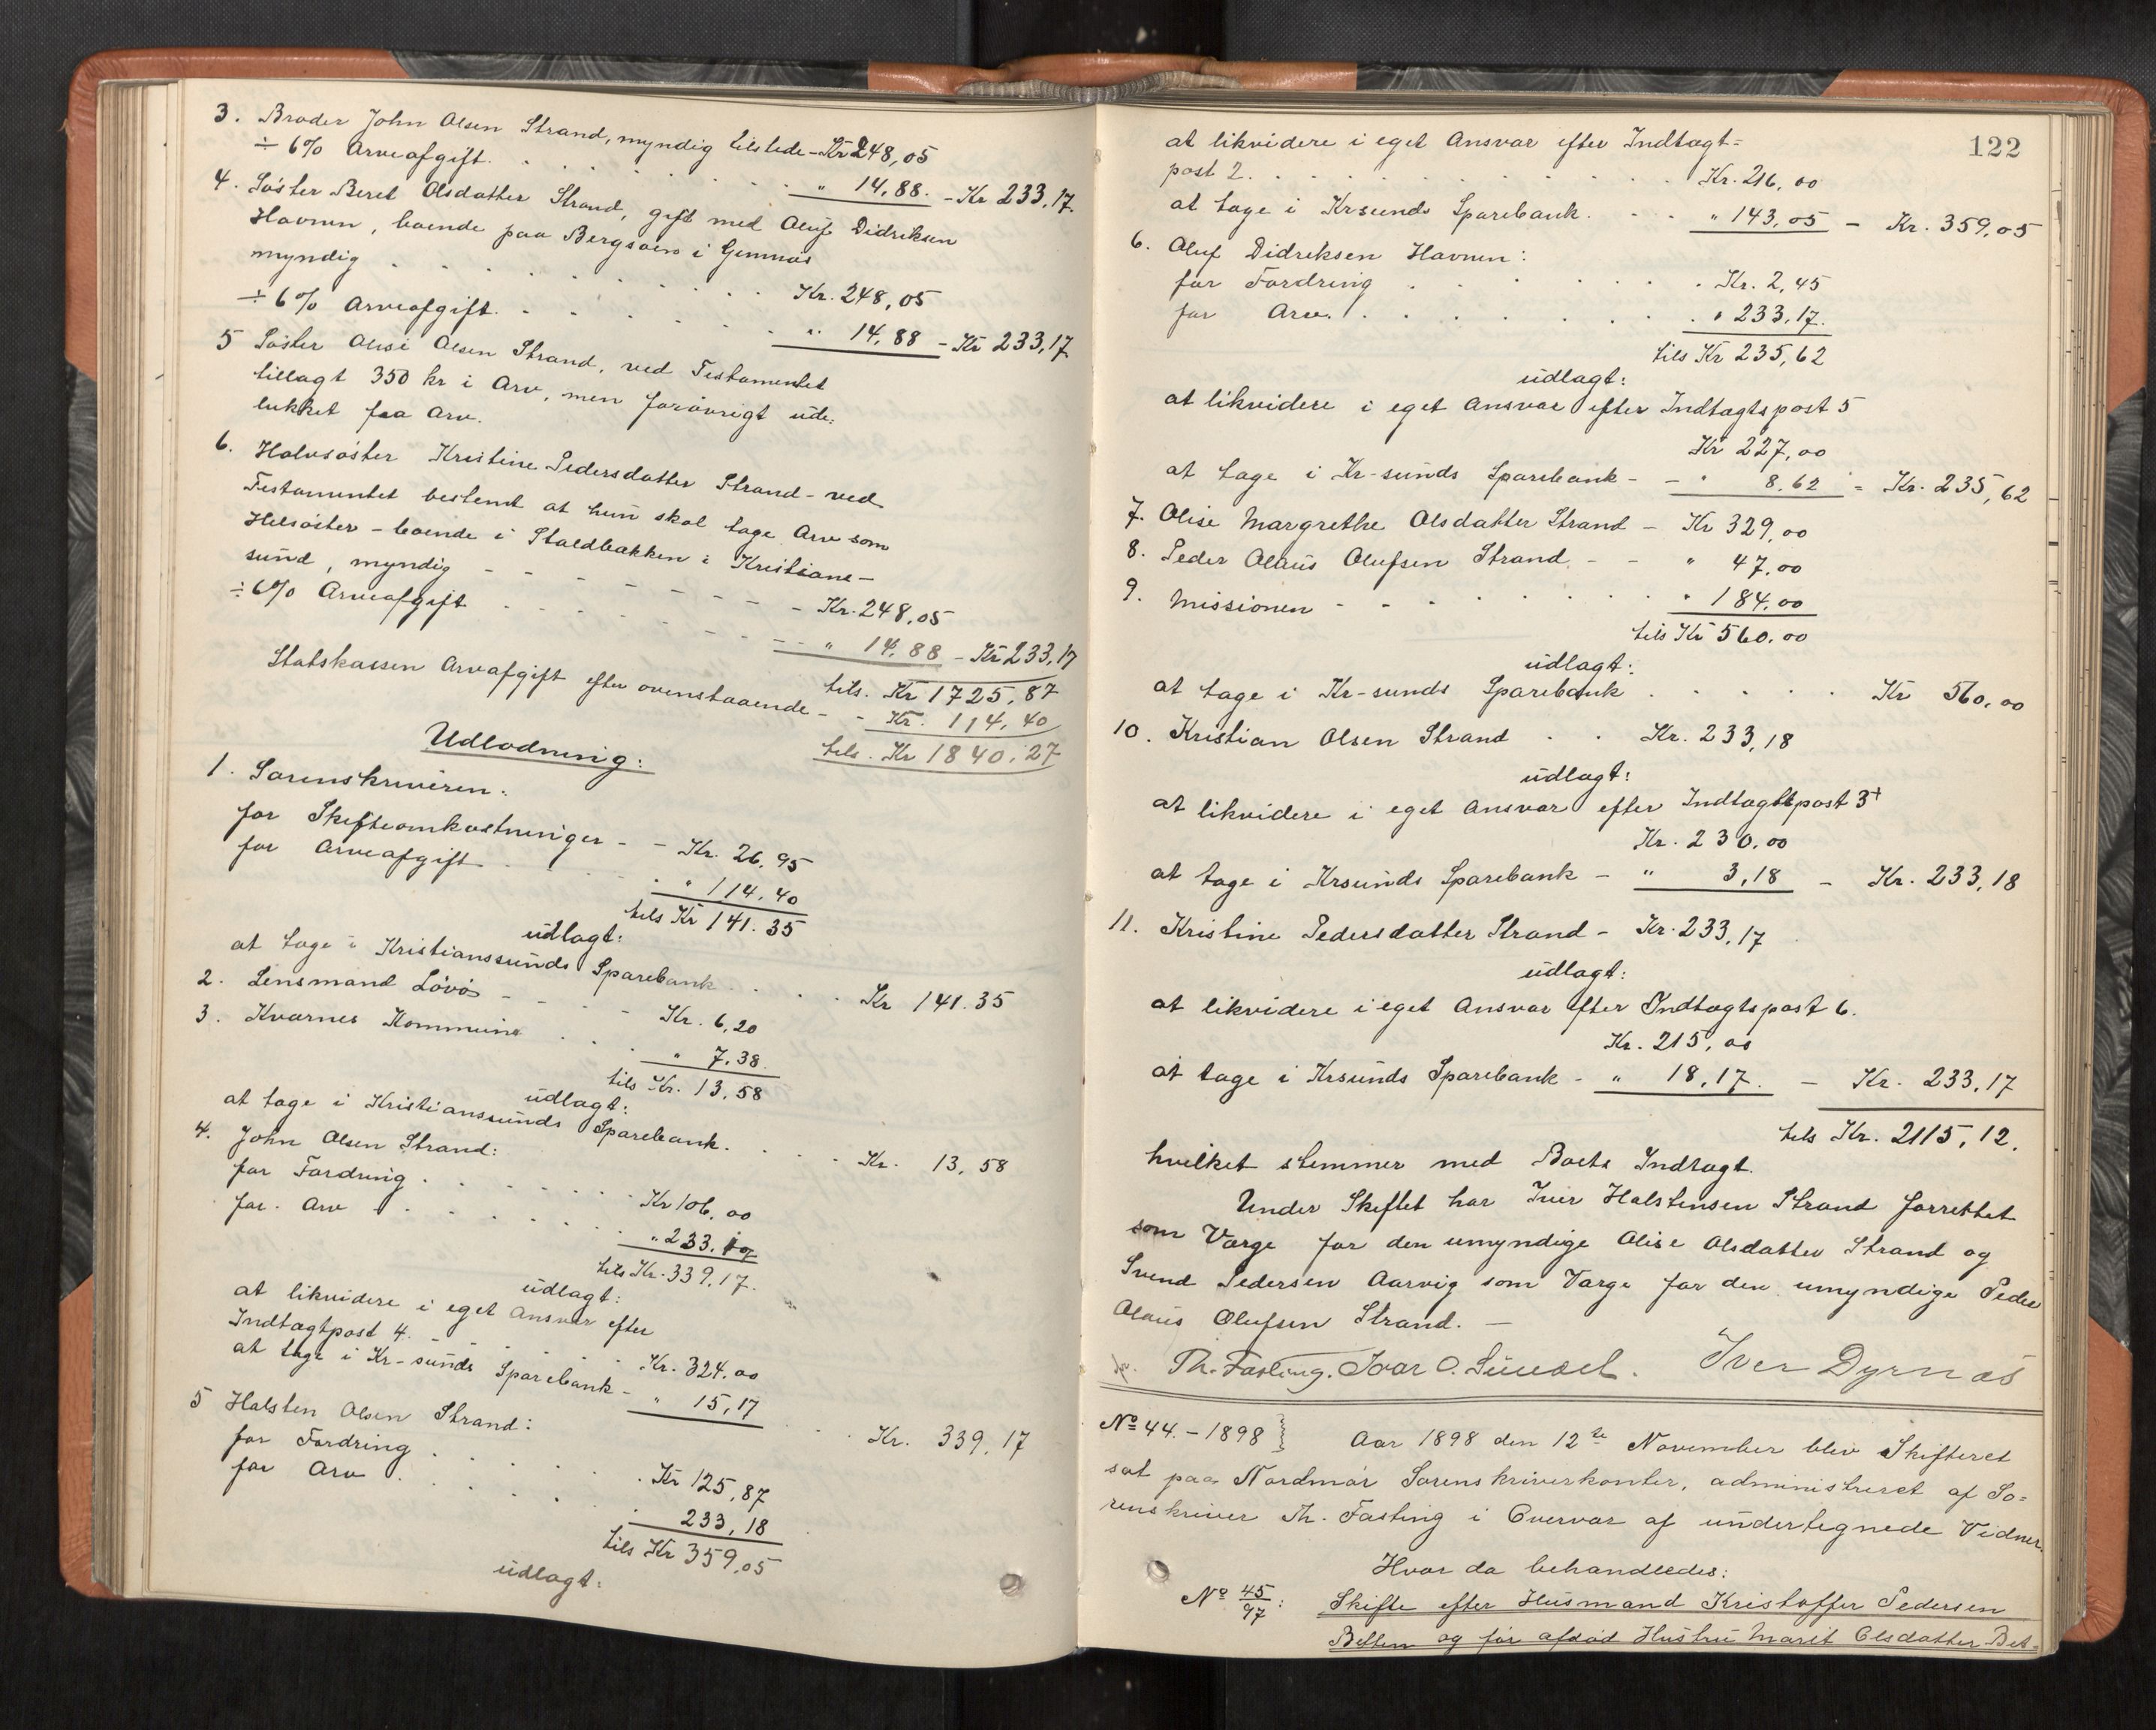 3. Broder John Olsen Strand, myndig tilstede - Kr 248,05
÷ 6% Arveafgift. . . . . . . . " 14,88. - Kr 233,17.
4. Søster Beret Olsdatter Strand, gift med Oluf Didriksen
Havnen, boende paa Bergsøen i Gimnæs
myndig . . . . . . . . . Kr. 248,05
÷ 6% Arveafgift. . . . . . . . " 14,88 - Kr 233,17
5 Søster Olise Olsen Strand, ved Testamentet
tillagt 350 kr i Arv, men forøvrigt ude-
lukket fra Arv.
6. Halvsøster Kristine Pedersdatter Strand - ved
Testamentet bestemt at hun skal tage Arv som
Helsøster - boende i Staldbakken i Kristians-
sund, myndig - - - - - - - - Kr. 248,05
÷ 6% Arveafgift . . . . . . . " 14,88 - Kr 233,17
tils. Kr 1725,87
Statskassen Arvafgift efter ovenstaaende - - Kr. 114,40
tils. Kr 1840,27
Udlodning:
1. Sorenskriveren:
for Skifteomkostninger - - Kr. 26,95
for Arveafgift . . . " 114,40
tils Kr 141.35
udlagt:
at tage i Kristianssunds Sparebank . . . . Kr 141.35
2. Lensmand Løvø - - - - Kr. 6,20
3. Kvernes Kommune . . . " 7.38
tils Kr. 13,58
udlagt:
at tage i Kristianssunds Sparebank. . . . . Kr. 13,58
4. John Olsen Strand:
for Fordring . . . . . . . Kr 106,00
for Arv . . . . . . . " 233.17
tils Kr. 339,17.
udlagt:
at likvidere i eget Ansvar efter
Indtægtpost 4. - - . . . Kr. 324,00
at tage i Kr-sunds Sparebank - " 15,17 . . Kr. 339,17
5 Halsten Olsen Strand:
for Fordring . . . . . . Kr 125,87
for Arv . . . . . . 233,18
tils Kr 359,05
udlagt:
122
at likvidere i eget Ansvar efter Indtægt=
post 2. . . . . . . . . . . . Kr. 216,00
at tage i Krsunds Sparebank. . . " 143,05 - Kr. 359,05
6. Oluf Didriksen Havnen:
for Fordring . . . . . . . Kr. 2,45
for Arv. . . . . . . . . " 233,17.
tils Kr 235,62
udlagt:
at likvidere i eget Ansvar efter Indtægtspost 5
Kr 227,00
at tage i Kr-sunds Sparebank - - " 8,62 = Kr. 235,62
7. Olise Margrethe Olsdatter Strand - Kr 329,00
8. Peder Olaus Olufsen Strand - - " 47,00
9. Missionen - - - . . . . " 184,00
tils Kr 560,00
udlagt:
at tage i Kr-sunds Sparebank . . . . . Kr 560,00
10. Kristian Olsen Strand . . Kr. 233,18
udlagt:
at likvidere i eget Ansvar efter Indtægtspost 3
Kr. 230,00
at tage i Krsunds Sparebank - " 3,18 - Kr. 233,18
11. Kristine Pedersdatter Strand - Kr. 233,17
udlagt:
at likvidere i eget Ansvar efter Indtægtspost 6.
Kr. 215,00
at tage i Krsunds Sparebank - " 18,17. - Kr. 233,17
tils Kr. 2115,12.
hvilket stemmer med Boets Indtægt.
Under Skiftet har Iver Halstensen Strand forrettet
som Værge for den umyndige Olise Olsdatter Strand og
Svend Pedersen Aarvig som Værge for den umyndige Peder
Olaus Olufsen Strand. -
Th. Fasting. Ivar O. Sundet. Iver Dyrnæs
No 44. - 1898 } Aar 1898 den 12te November blev Skifteret
sat paa Nordmør Sorenskriverkontor, administreret af So=
renskriver Th. Fasting i Overvær af undertegnede Vidner.
Hvor da behandledes:
No 45/97: Skifte efter Husmand Kristoffer Pedersen
Betten og før afdød Hustru Marit Olsdatter Bet=